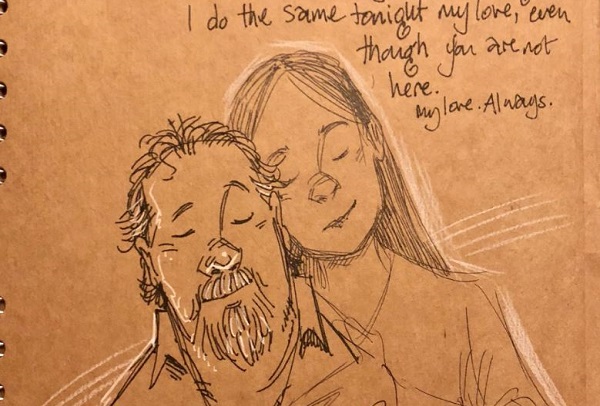 I do the same tonight my love, even
though you are not
here.
my love. Always.